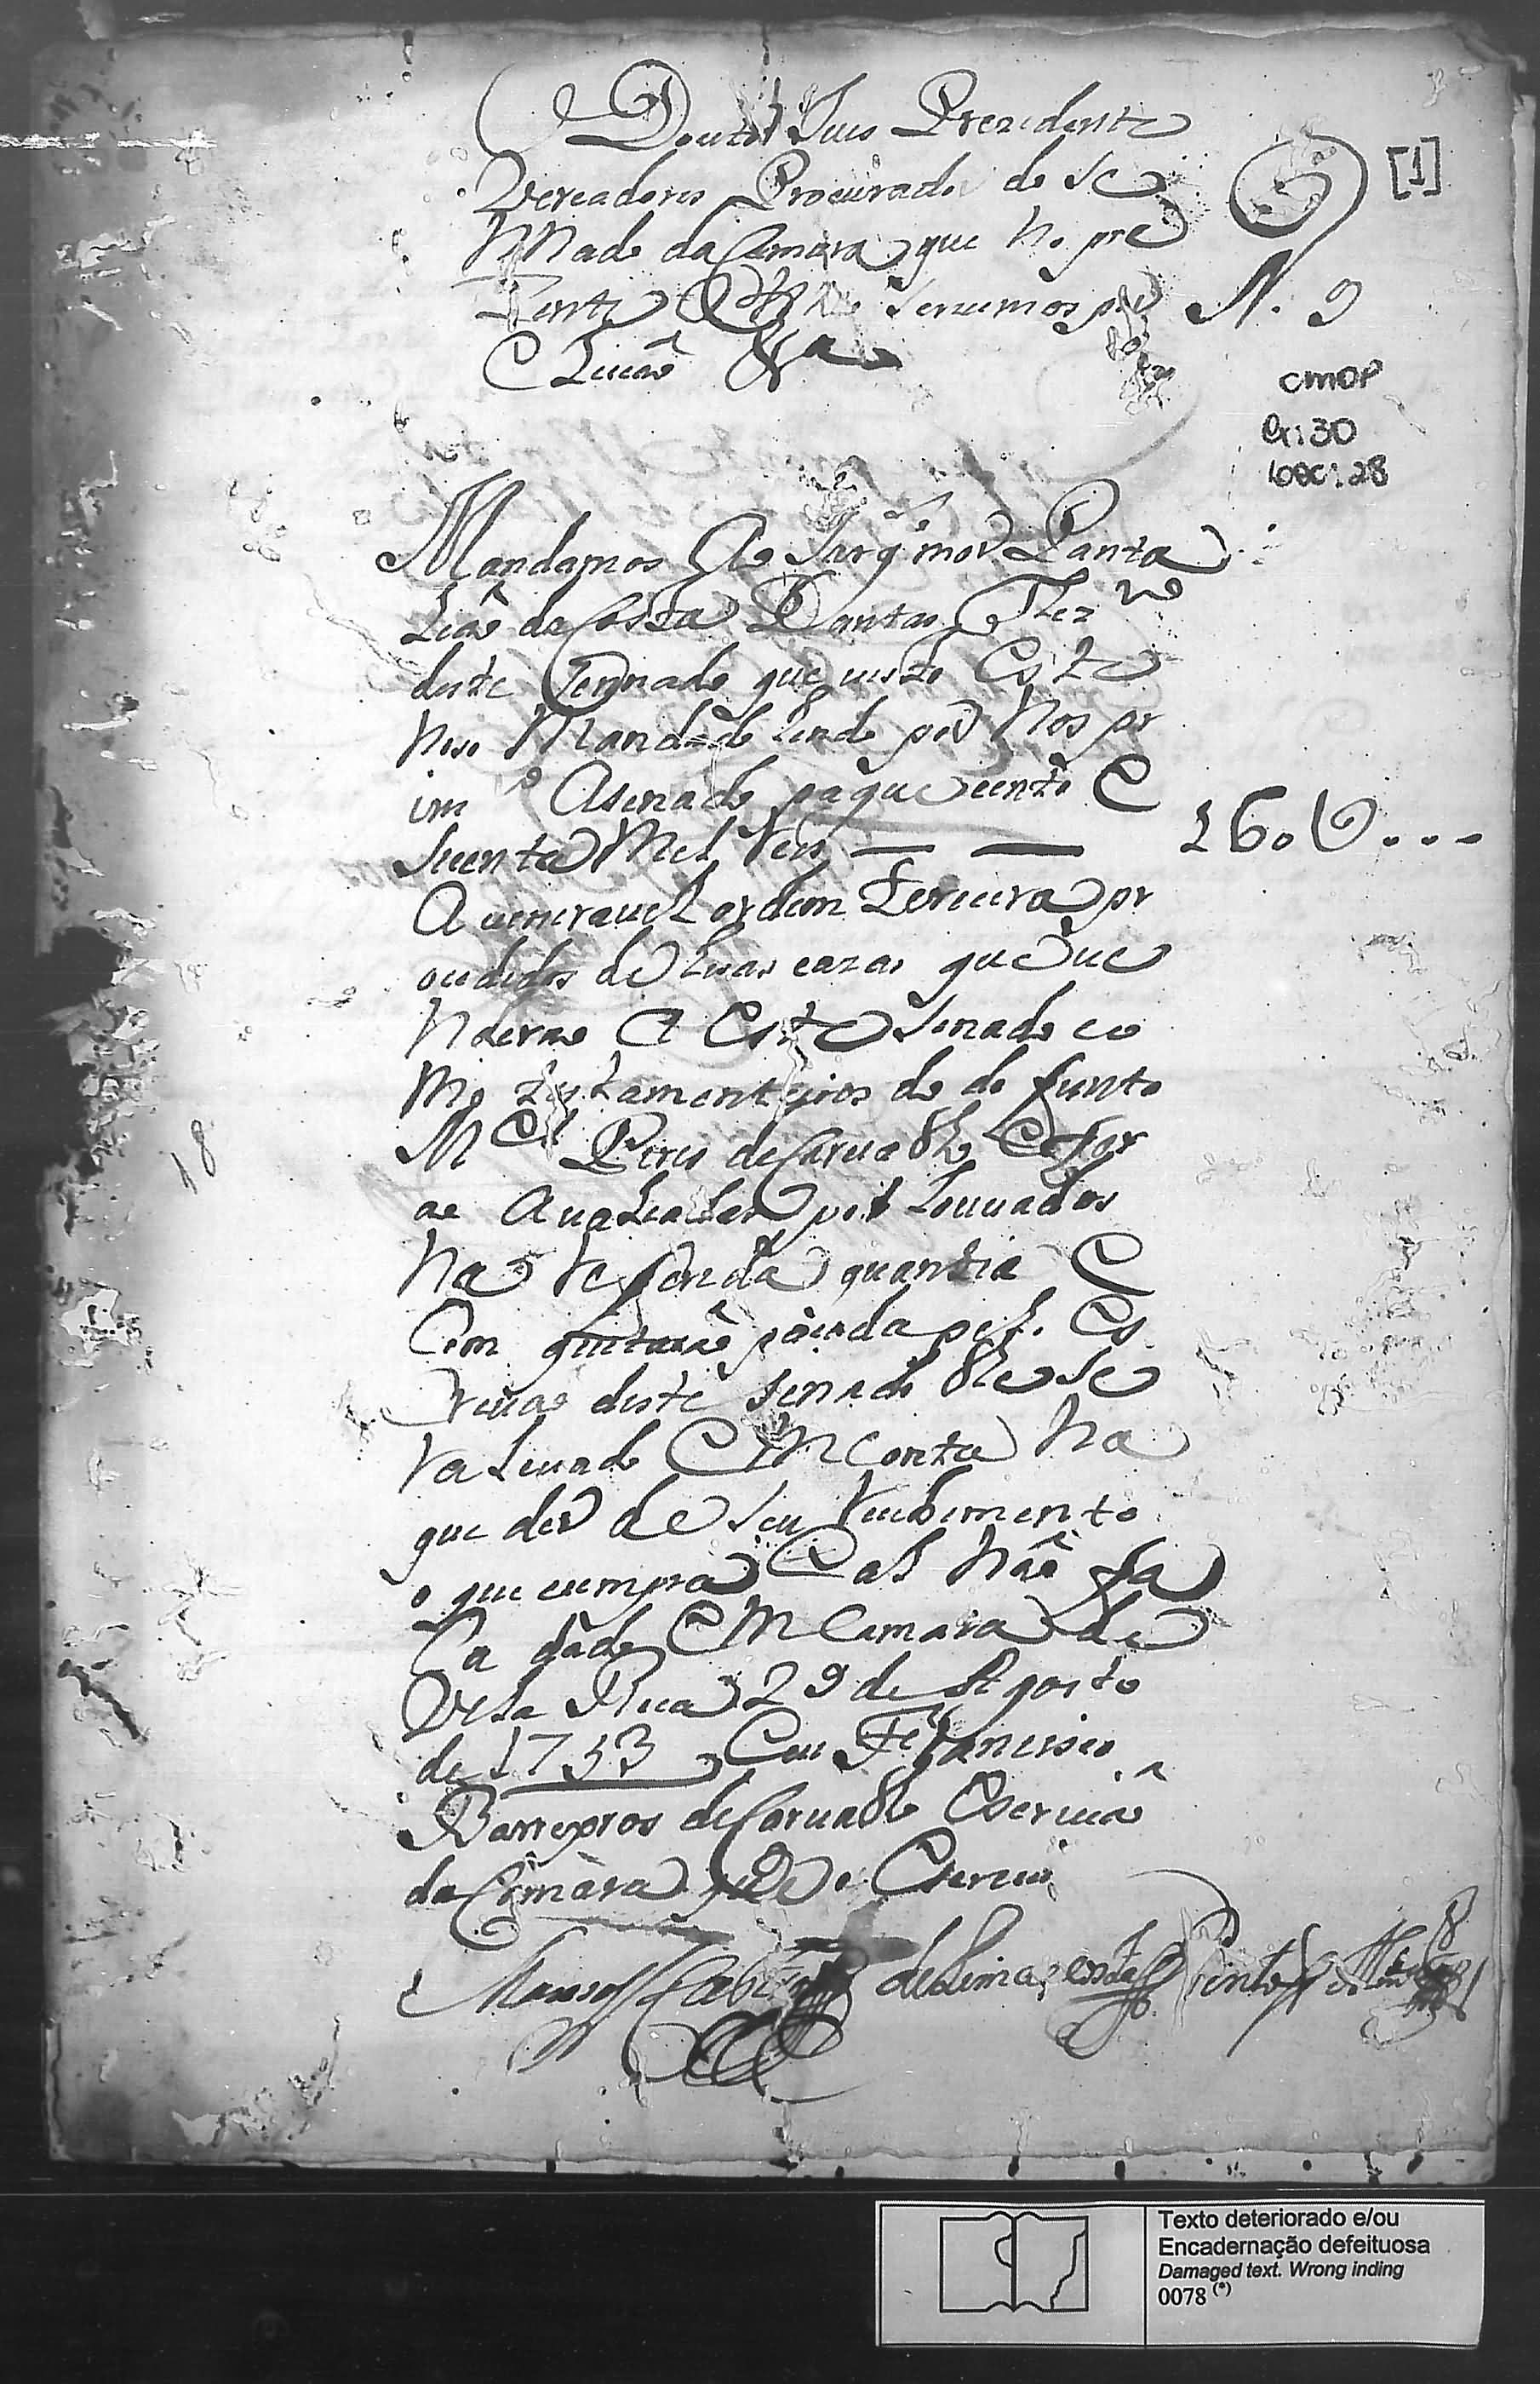 Doutor Juis Prezidente
Vereadores Procurador do Se
Nnado da Camara que No pre
Zente Anno Seruimos por
E Leicaõ &a
[1]
N. 9
cmop
Cx: 30
Doc: 28
Mandamos Ao Sargto mor Panta
Leaõ da Costa Dantas Thezro
deste Sennado que uisto Este
Noso Mandado Sendo por Nos pr
imo Asenado pague cento E
Secenta Mil Reis
160V...
A ueneravel ordem Terceira pr
ocedidos de Suas cazas que ue
Nderao A Este Senado co
Mo testamenteiros do de funto
Mel Pires de Carualho E For
ao AuaLiadas por Louuados
Na Referida quantia E
Com quitacaõ pasada pelo Es
Criuao deste Senado lhe Se
ra Leuado EM Conta Na
que der de Seu Recebimento
o que cumpra E al Naõ fa
Ca dado EM Camara de
Villa Rica 29 de Agosto
de 1753 Eu Francisco
Barreyros de Carualho Escriuaõ
da Camara que o Escreui
Manoel de Lima Costa Pinto
18
Texto deteriorado e/ou
Encadernação defeituosa
Damaged text. Wrong inding
0078 (*)